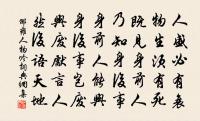 人盛必有衰
物生須有死
既見身前人
乃知身後事
身前人能興
身後事豈廢
興廢獻言人
然後語天地
邵雍人物吟詞典網集